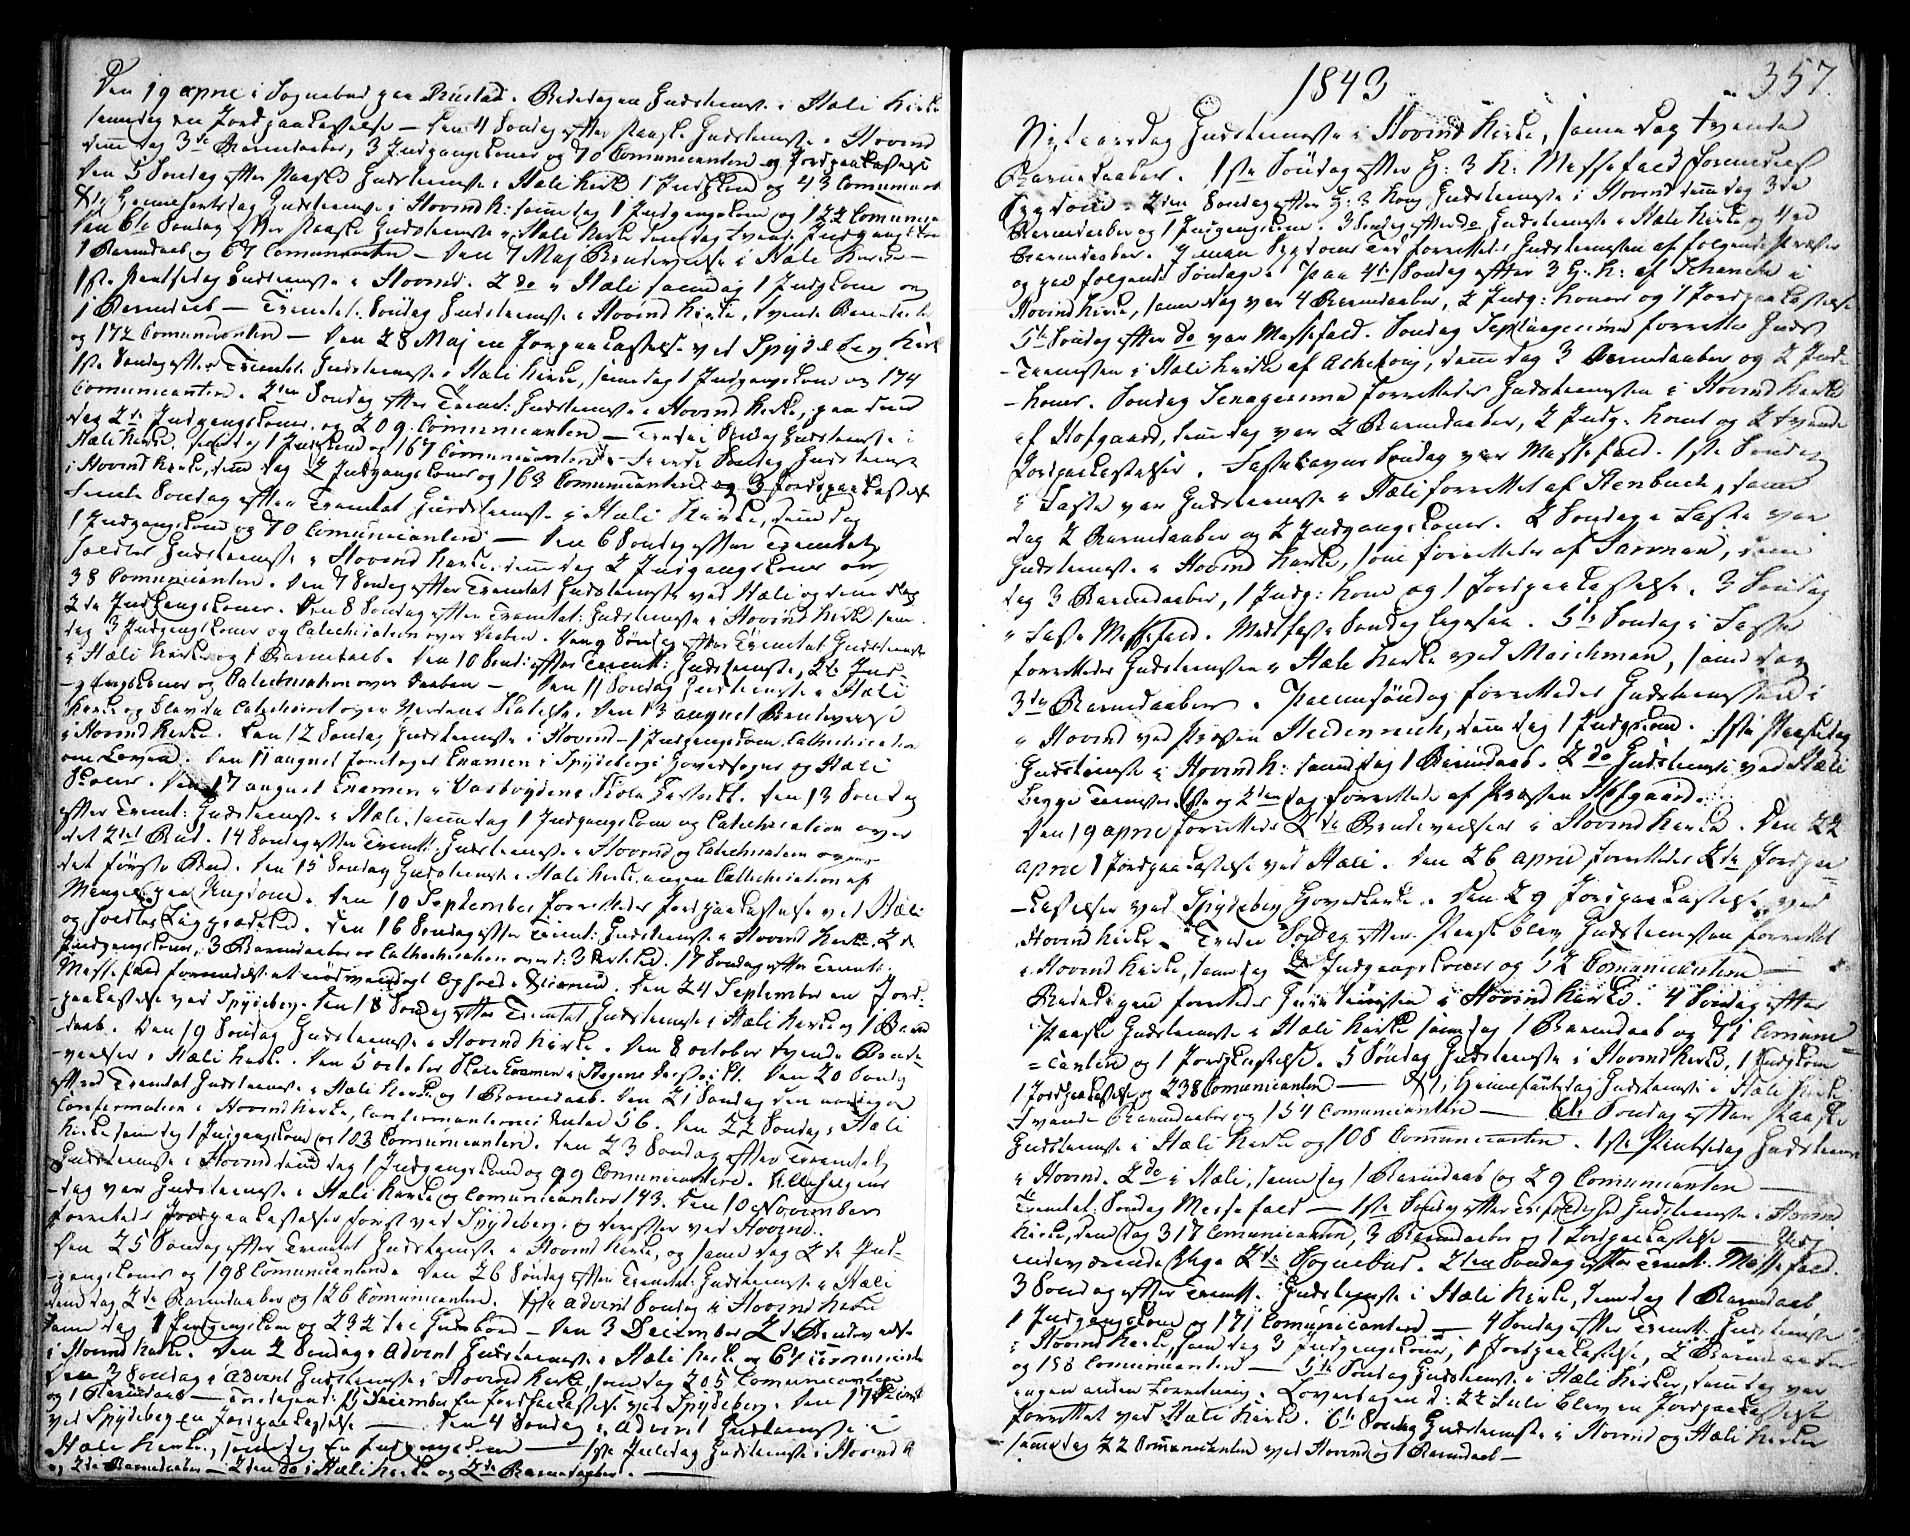 Den 19 april i Sognebud paa Rustad. Bededagen Gudstieneste i Hæli Kirke
samme dag en Jordpaakastelse — Den 4 Søndag efter Paaske Gudstieneste i Hovind
denne dag 3de Barnedaaber, 3 Indgangskoner og 70 Comunicantere og Jordpaakastelse
Den 5 Søndag efter Paaske Gudstieneste i Hæli Kirke 1 Indgkone og 43 Comunicant
Chr Himmelfartsdag Gudstieneste i Hovind K: samme dag 1 Indgangskone og 122 Comunica
Den 6te Søndag efter Paaske Gudstieneste i Hæli Kirke denne dag tvende Indgangskon
1 Barnedaab og 67 Comunicanter — Den 7 Maj Brudevielse i Hæli Kirke —
1ste Pintsedag Gudstieneste i Hovind. 2 do i Hæli samme dag 1 Indgkone og
1 Barnedaab — Trinitat: Søndag Gudstieneste i Hovind Kirke, tvende Barnedaaber
og 172 Comunicantere — Den 28 Maj en Jorpaakastelse ved Spydeberg Kirke
1ste Søndag efter Trinitat: Gudstieneste i Hæli Kirke, samme dag 1 Indgangskone og 174
Comunicanter. 2den Søndag efter Trinit: Gudstieneste i Hovind Kirke, paa denne
dag 2de Indgangskoner og 209 Comunicantere — Tredie Søndag Gudstieneste i
Hæli Kirke, samme dag 1 Indgkone og 167 Comunicantere — Fierde Søndag Gudstieneste
i Hovind Kirke, denne dag 2 Indgangskoner og 163 Comunicantere og 3 Jordpaakastelse
Femte Søndag efter Trinitat Gudstieneste i Hæli Kirke, denne dag
1 Indgangskone og 70 Comunicantere — Den 6 Søndag efter Trinitat
holdtes Gudstieneste i Hovind Kirke, denne dag 2 Indgangskoner og
38 Comunicantere. Den 7 Søndag efter Trinitat Gudstieneste ved Hæli og denne dag
2de Indgangskoner. Den 8 Søndag efter Trinitat: Gudstieneste i Hovind Kirke samme
dag 3 Indgangskoner og Catechisation over Daaben. Den 9 Søndag efter Trinitat Gudstieneste
i Hæli Kirke og 1 Barnedaab. Den 10 Sønd: efter Trinit: Gudstieneste, 2de Ind-
-gangskoner og Catechisation over Daaben — Den 11 Søndag Gudstieneste i Hæli
Kirke og blev da Catechiseret over . Den 13 august Brudevielse
i Hovind Kirke. Den 12 Søndag Gudstieneste i Hovind — 1 Indgangskone, Catechisation
om Loven. Den 11 august foretoges Examen i Spydebergs Hovedsogns og Hæli
Skoler. Den 17 august Examen i Skole District. Den 13 Søndag
efter Trinit: Gudstieneste i Hæli, samme dag 1 Indgangskone og Catechisation over
det 2det Bud. 14 Søndag efter Trinit: Gudstieneste i Hovind og Catechisation over
det første Bud. Den 15 Søndag Gudstieneste i Hæli Kirke, ingen Cathechisation af
Mangel paa Ungdom. Den 10 September forrettedes Jordpaakastelse ved Hæli
og holdtes Liigprædiken. Den 16 Søndag efter Trinit: Gudstieneste i Hovind Kirke. 2de
Indgangskoner, 3 Barnedaaber og Cathechisation over d: 3 Artikel. 17 Søndag efter Trinit:
Messefald formedelst et nødvendigt Ophold i . Den 24 September en Jord-
-paakastelse ved Spydeberg. Den 18 Søndag efter Trinitat Gudstieneste i Hæli Kirke og 1 Barne
daab. Den 19 Søndag Gudstieneste i Hovind Kirke. Den 8 october tvende Brude-
-vielser i Hæli Kirke. Den 5 october Skole Examen i District. Den 20 Søndag
efter Trinitat Gudstieneste i Hæli Kirke og 1 Barnedaab. Den 21 Søndag den aarlige
Confirmation i Hovind Kirke, Confirmanternes Antal 56. Den 22 Søndag i Hæli
Kirke samme dag 1 Indgangskone og 103 Comunicantere. Den 23 Søndag efter Trinitat
Gudstieneste i Hovind denne dag 1 Indgangskone og 99 Comunicantere. Allehelgens
-dag var Gudstieneste i Hæli Kirke og Comunicanter 143. Den 10 November
forrettedes Jordpaakastelse først ved Spydeberg og derefter ved Hovind.
Den 25 Søndag efter Trinitat Gudstieneste i Hovind Kirke, og samme dag 2de Ind-
-gangskoner og 198 Comunicantere. Den 26 Søndag efter Trinitat: Gudstieneste i Hæli
denne dag 2de Barnedaaber og 126 Comunicanter. 1ste Advent Søndag i Hovind Kirke
samme dag 1 Indgangskone og 232 til Gudsbord — Den 3 December 2de Brudevielse
i Hovind Kirke. Den 2 Søndag i Advent Gudstieneste i Hæli Kirke og 67 Comunicante
Den 3 Søndag i Advent Gudstieneste i Hovind Kirke, samme dag 205 Comunicantere
og 1 Barnedaab — December en Jordpaakastelse ved Spydeberg. Den 17
ved Spydeberg en Jordpaakastelse — Den 4 Søndag i Advent Gudstieneste i
Hæli Kirke, samme dag en Indgangskone — 1ste Juledag Gudstieneste i Hovind K
og 2de Barnedaaber — 2den do i Hæli Kirke og 2de Barnedaaber. —
1843
357.
Nytaarsdag Gudstieneste i Hovind Kirke, samme dag tvende
Barnedaaber. 1ste Søndag efter H: 3 K: Messefald formedelst
Sygdom. 2den Søndag efter H: 3 Kong Gudstieneste i Hovind denne dag 3de
Barnedaaber og 1 Indgangskone. 3 Søndag efter do Gudstieneste i Hæli Kirke og 4
Barnedaaber. I min Sygdoms Tid forrettedes Gudstienesten af følgende Præster
og paa følgende Søndage: paa 4de Søndag efter 3 H: K: af Schancke i
Hovind Kirke, samme dag var 4 Barnedaaber, 2 Indg: Koner og 1 Jordpaakastelse
5te Søndag efter do var Messefald. Søndag Septuagesima forrettes Guds
-Tienesten i Hæli Kirke af , denne dag 3 Barnedaaber og 2 Ind-
-koner. Søndag Sexagesima forrettedes Gudstienesten i Hovind Kirke
af Hofgaard, denne dag var 2 Barnedaaber, 2 Indg: Koner og 2 tvende
Jordpaakastelser. Fastelavns Søndag var Messefald. 1ste Søndag
i Faste var Gudstieneste i Hæli forrettet af Stenbuch, samme
dag 2 Barnedaaber og 2 Indgangskoner. 2 Søndag i Faste var
Gudstieneste i Hovind Kirke, som forrettedes af Sarman, denne
dag 3 Barnedaaber, 1 Indg: Kone og 1 Jordpaakastelse. 3 Søndag
i Faste Messefald. Midfaste Søndag ligesaa. 5te Søndag i Faste
forrettedes Gudstienesten i Hæli Kirke ved Maschman, samme dag
3de Barnedaaber. Palmesøndag forrettedes Gudstienesten i
i Hovind ved Præsten Heidenreich, denne dag 1 Indgskone. 1ste Paaskedag
Gudstieneste i Hovind K: samme dag 1 Barnedaab. 2 do Gudstieneste ved Hæli
Begge Tienester 1ste og 2den dag forrettede af Præsten Hofgaard.
Den 19 april forrettedes 2de Brudevielser i Hovind Kirke. Den 22
april 1 Jordpaakastelse ved Hæli. Den 26 april forrettedes 2de Jordpaa-
-kastelser ved Spydeberg Hovedkirke. Den 29 Jordpaakastelse ved
Hovind Kirke. Tredie Søndag efter Paaske blev Gudstienesten forrettet
i Hovind Kirke, samme dag 2 Indgangskoner og 52 Comunicantere —
Bededagen forrettedes Gudstienesten i Hovind Kirke. 4 Søndag efter
Paaske Gudstieneste i Hæli Kirke samme dag 1 Barnedaab og 71 Comuni-
=cantere og 1 Jordpaakastelse. 5 Søndag Gudstieneste i Hovind Kirke, 1 Indgkone
1 Jordpaakastelse og 238 Comunicantere — Chr: Himmelfartsdag Gudstieneste i Hæli Kirke
Tvende Barnedaaber og 154 Comunicantere — 6te Søndag efter Paaske
Gudstieneste i Hæli Kirke og 108 Comunicanter. 1ste Pintsedag Gudstieneste
i Hovind. 2 do i Hæli, samme dag 1 Barnedaab og 29 Comunicantere —
Trinitat: Søndag Messefald — 1ste Søndag efter Gudstieneste i Hovind
Kirke, denne dag 317 Comunicanter, 3 Barnedaaber og 1 Jordpaakastelse —
2de Sognebud. 2den Søndag efter Trinit: Messefald.
3 Søndag efter Trinit: Gudstieneste i Hæli Kirke, denne dag 1 Barnedaab,
1 Indgangskone og 171 Comunicantere — 4 Søndag efter Trinit: Gudstieneste
i Hovind Kirke, samme dag 3 Indgangskoner, 1 Jordpaakastelse, 2 Barnedaaber
og 158 Comunicantere — 5te Søndag Gudstieneste i Hæli Kirke, denne dag var
ingen anden Forretning. Løverdagen d: 22 Juli blev en Jordpaakastelse
forrettet ved Hæli Kirke. 6te Søndag Gudstieneste i Hovind og Hæli Kirker
samme dag 22 Comunicanter ved Hovind og 1 Barnedaab —